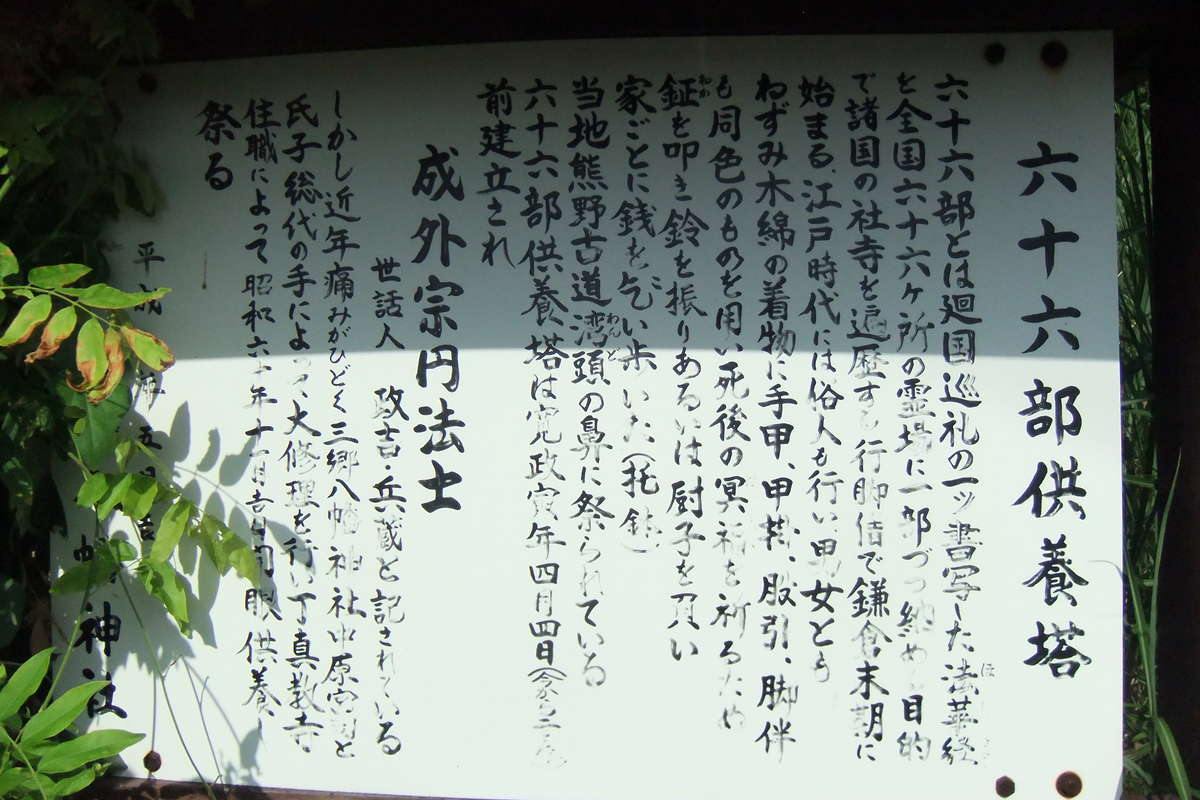 六十六部供養塔
六十六部とは廻国巡礼の一ッ書写した法華経
を全国六十六ヶ所の霊場に一部づつ納める目的
で諸国の社寺を遍歴する行脚僧で鎌倉末期に
始まる、江戸時代には俗人も行い男女とも
ねずみ木綿の着物に手甲、甲掛、股引、脚伴
も同色のものを用い死後の冥福を祈るため
鉦を叩き鈴を振りあるいは厨子を負い
家ごとに銭を乞い歩いた（托鉢）
当地熊野古道湾頭の鼻に祭られている
六十六部供養塔は寛政寅年四月四日
前建立され
成外宗円法士
世話人 政吉・兵蔵と記されている
しかし近年痛みがひどく三郷八幡神社中原宮司と
氏子総代の手によって大修理を行い丁真教寺
住職によって昭和六十年十一月吉日開眼供養し
祭る
平成 年五月吉
幡神社